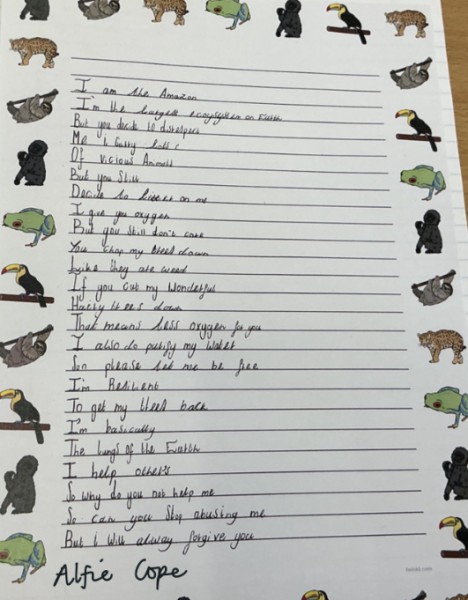 I am the Amazon
I'm the largest ecosystem on Earth
But you decide to disrespect
Me
Of vicious Animals
But you Still
Decide to on me
I give you oxygen
But you Still don't care
You chop my trees down
Like they are weed
If you cut my Wonderful
trees down
That means less oxygen for you
I also do purify my water
Soo please let me be free
I'm Resilient
To get my trees back
I'm basically
The lungs of the Earth
I help other's
So why do you not help me
So can you Stop abusing me
But I Will alway forgive you
Alfie Cope